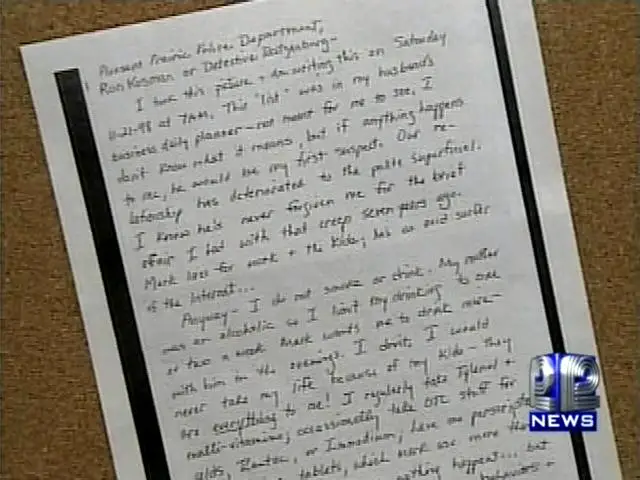 Pleasant Prairie Police Department,
Ron Kosman or Detective Ratzenburg-
I took this picture + am writing this on Saturday
11-21-98 at 7AM. This "list" was in my husband's
business daily planner - not meant for me to see, I
don't know what it means, but if anything happens
to me, he would be my first suspect. Our re-
lationship has deteriorated to the polite superficial.
I know he's never forgiven me for the brief
affair I had with that creep seven years ago.
Mark lives for work + the kids; he's an avid surfer
of the Internet...
Anyway - I do not smoke or drink. My mother
was an alcoholic, so I limit my drinking to one
or two a week. Mark wants me to drink more-
with him in the evenings. I don't. I would
never take my life because of my kids - they
are everything to me! I regularly take Tylenol +
multi-vitamins; occasionally take OTC stuff for
colds, Zantac, or Immodium; have one prescription
tablets, which more
anything happens... but
behaviors +
12
NEWS